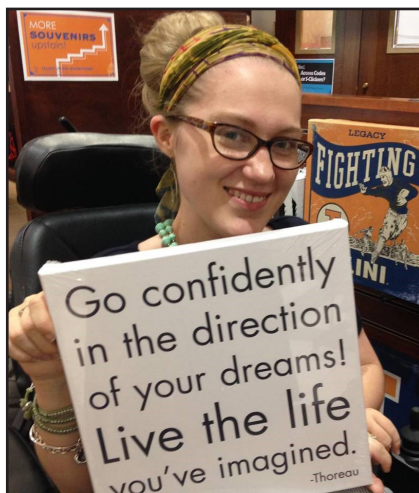 MORE
SOUVENIRS
upstairs!
Access Codes
or I-Clickers?
LEGACY
FIGHTING
I
LINI
Go confidently
in the direction
of your dreams!
Live the life
you've imagined.
-Thoreau